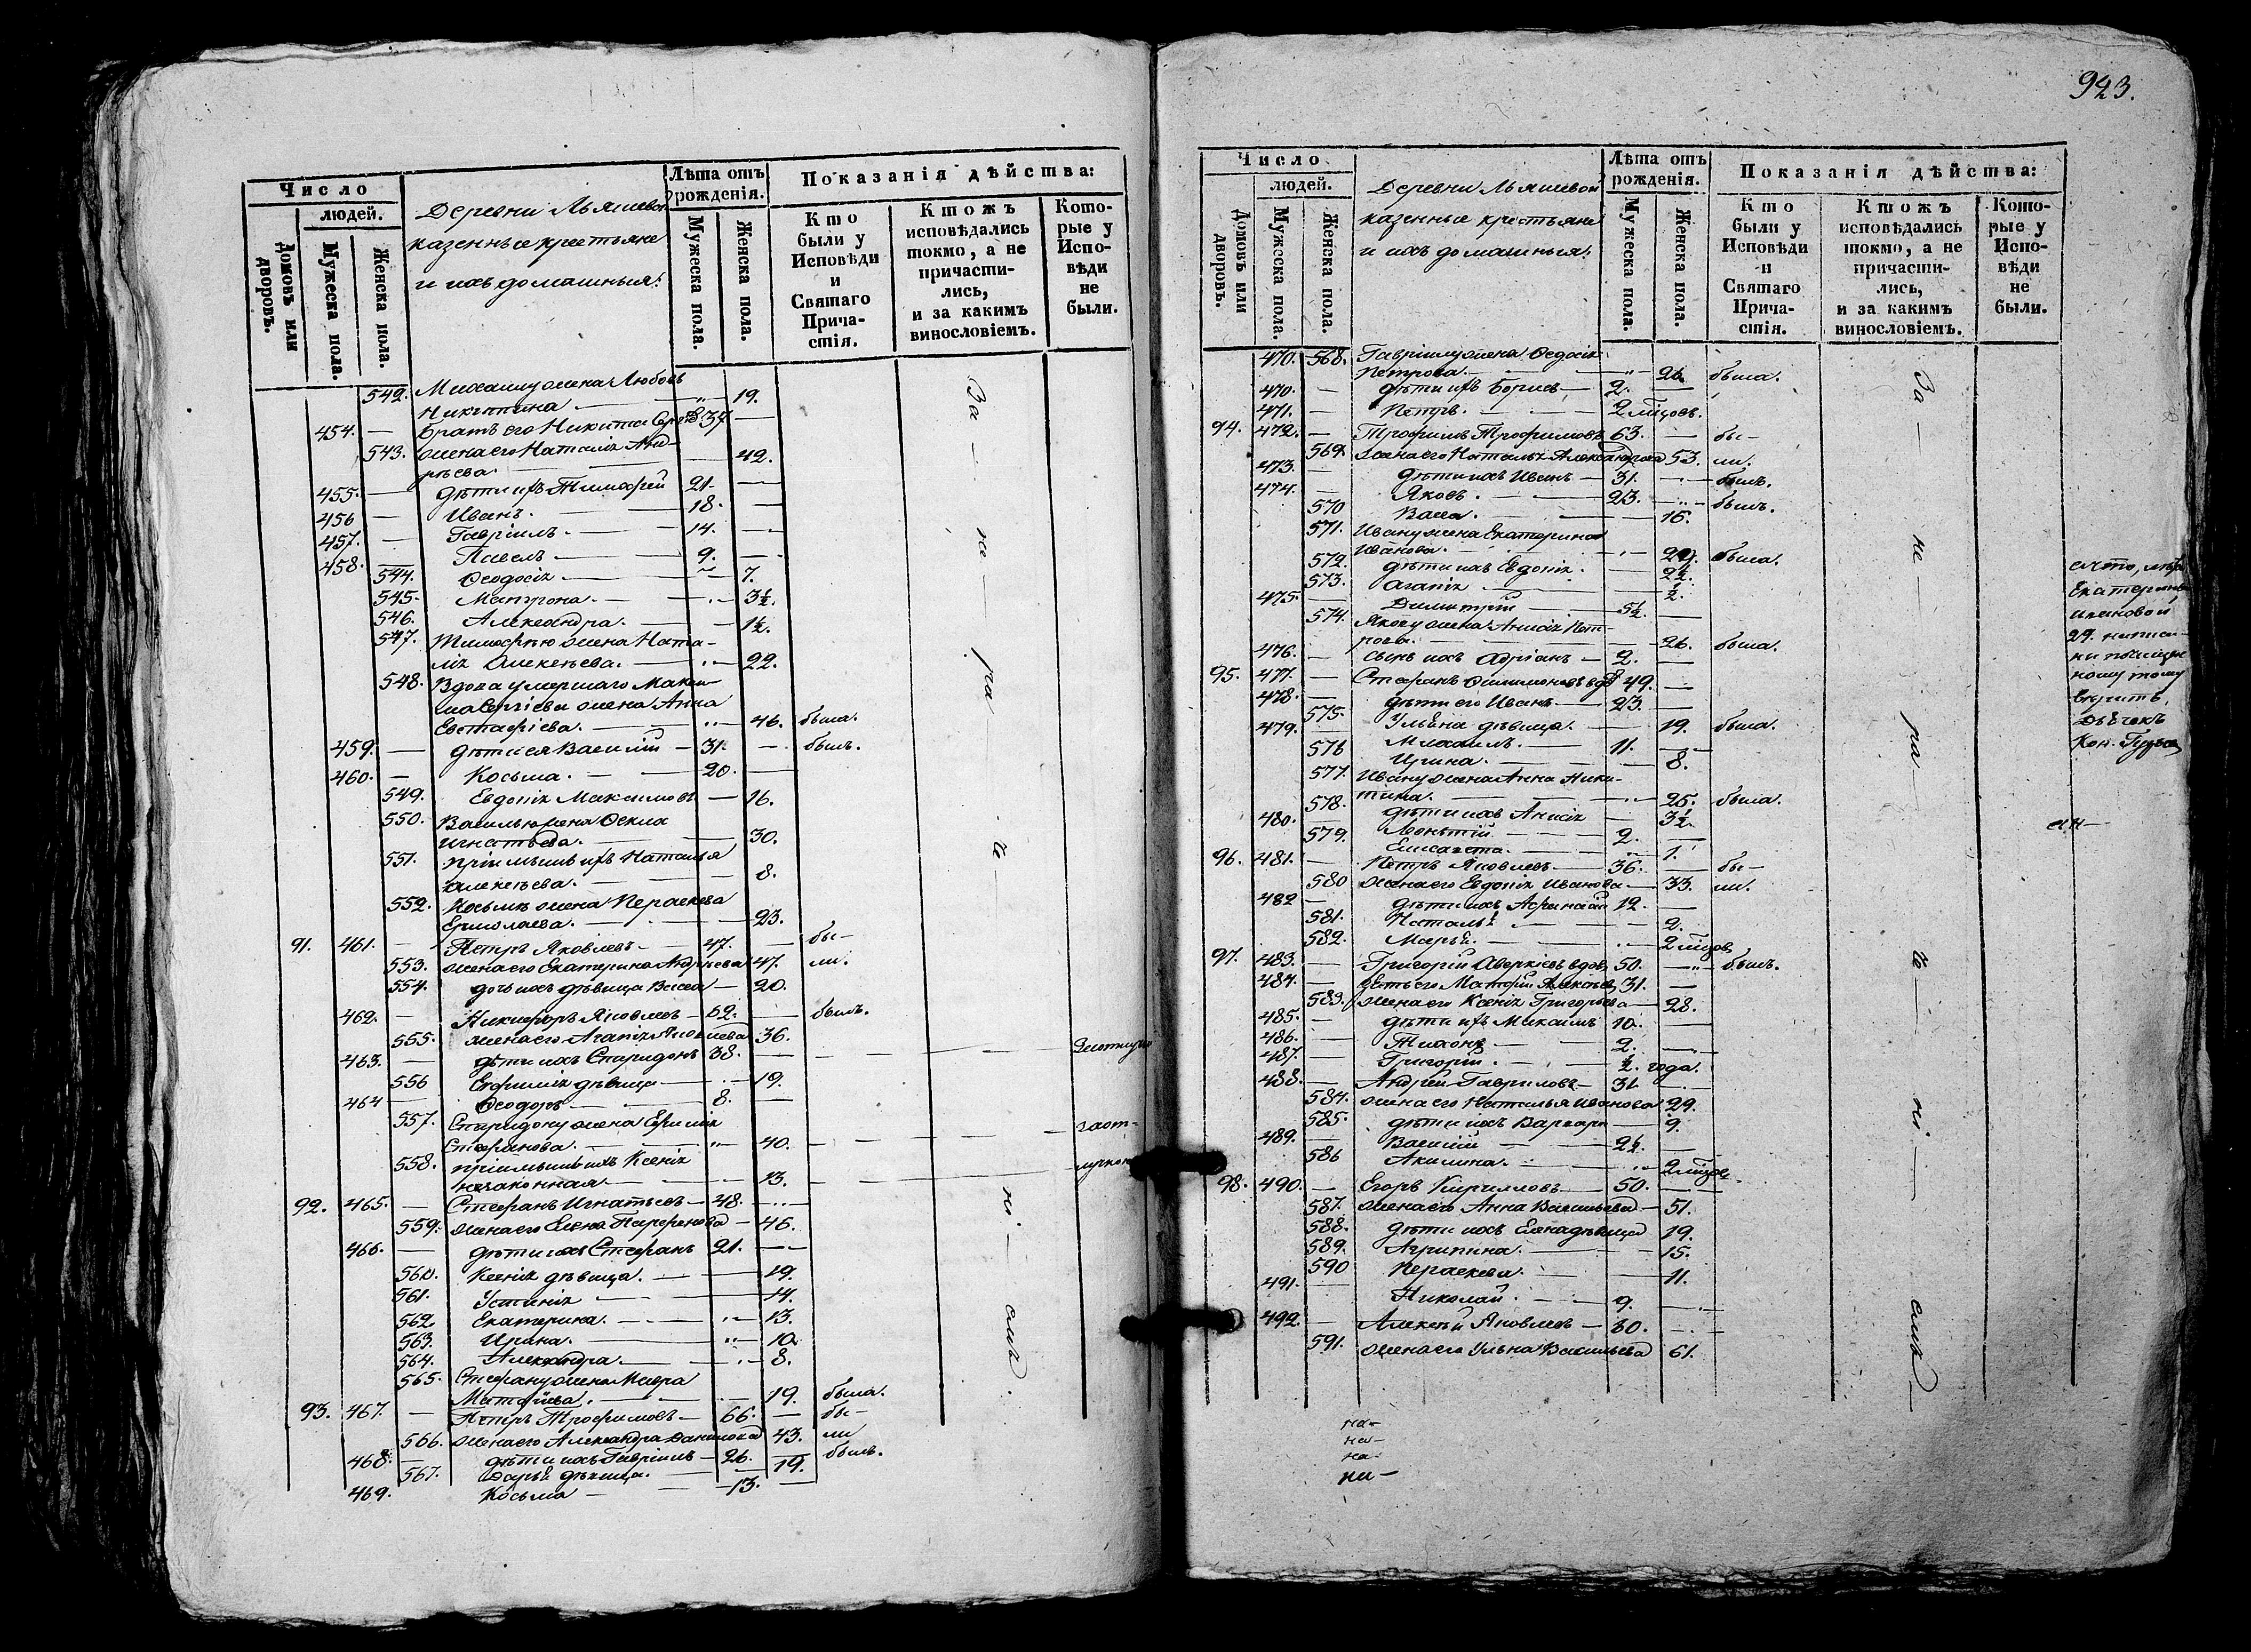 Число
людей.
Домовъ или дворовъ.
Мужеска пола.
Женска пола.
Деревни Льяшевой
казенные крестьяне
и ихъ домашныя:
Лѣта отъ рожденія.
Мужеска пола.
Женска пола.
Показанія дѣйства:
Кто были у Исповѣди и Святаго Прича-стія.
Ктожъ исповѣдались токмо, а не причасти-лись, и за какимъ винословіемъ.
Кото-рые у Испо-вѣди не были.
542. Михаилу жена Любовь
Никитина — „ — 19.
454. — Братъ его Никита 37. —
543. жена его Наталія Анд-
рѣева. — 42.
455. — дѣти ихъ Тимофей 21. —
456 — Иванъ. — 18. —
457. — Гавріилъ. — 14. —
458. — Павелъ — 9. —
544. Ѳеодосія — 7.
545. Матрона. — 3½.
546. Александра. — 1½.
547. Тимофею жена Ната-
лія Алексѣева. — „ — 22.
548. Вдова умершаго Макси-
ма Сергіева жена Анна
Евстафіева. — „ — 46. была.
459. — дѣти ея Василій — 31. — былъ.
460. — Косьма. — 20. —
549. Евдокія Максимова — 16.
550. Василью жена Ѳекла
Игнатьева. — 30.
551. пріемышъ ихъ Наталья
Алексѣева. — 8.
552. Косьмѣ жена Пераскева
Ермолаева. — 23.
91. 461. — Петръ Яковлевъ — 47. — бы-
553. жена его Екатерина Андреева 47. ли.
554. дочь ихъ дѣвица Васса — 20.
462. — Никифоръ Яковлевъ — 62. — былъ.
555. жена его Агапія 36.
463. — дѣти ихъ Спиридонъ 38. —
556 Евфимія дѣвица — 19.
464 — Ѳеодоръ — 8. —
557. Спиридону жена Евфимія
Стефанова. — „ — 40. — заот-
558. пріемышъ ихъ Ксенія
незаконная — 13. —
92. 465. — Стефанъ Игнатьевъ — 48. —
559. жена его Елена Парфенова — 46.
466. — дѣти ихъ Стефанъ 21. —
560. Ксенія дѣвица. — 19.
561. Устинія — 14.
562 Екатерина. — „ — 13.
563. Ирина. — „ — 10.
564. Александра — 8.
565. Стефану жена Мавра
Матфіева. — 19. была.
93. 467. — Петръ Трофимовъ — 66. — бы-
566. жена его Александра Данилова 43. ли
468. — дѣти ихъ Гавріилъ — 26. — былъ.
567. Дарья дѣвица. — 19.
469. Косьма — 13. —
За — не — ра — че — ні — емъ.
923.
Число
людей.
Домовъ или дворовъ.
Мужеска пола.
Женска пола.
Деревни Льяшевой
казенные крестьяне
и ихъ домашныя:
Лѣта отъ рожденія.
Мужеска пола.
Женска пола.
Показанія дѣйства:
Кто были у Исповѣди и Святаго Прича-стія.
Ктожъ исповѣдались токмо, а не причасти-лись, и за какимъ винословіемъ.
Кото-рые у Испо-вѣди не были.
470. 568. Гаврилу жена Ѳедосія
Петрова. — „ — 26. была.
470. — дѣти ихъ Борисъ — 2. —
471. — Петръ. — 2 мѣсцовъ.
94. 472. — Трофимъ Трофимовъ 63. — бы-
569. жена его Наталья Александрова 53. ли.
473. — дѣти ихъ Иванъ — 31. — былъ.
474. — Яковъ. — 23. — былъ.
570 Васса. — 16.
571. Ивану жена Екатерина
Иванова. — была.
572. дѣти ихъ Евдокія. — 2½.
573. Агапія — ½.
475. — Димитрій — 5½. —
574. Якову жена Анисія Пет-
рова. — 26. была.
476. — сынъ ихъ Адріанъ — 2. —
95. 477. — Стефанъ 49. —
478. — дѣти его Иванъ — 23. —
575. Ульяна дѣвица. — 19. была.
479. — Михаилъ. — 11. —
576 Ирина. — 8.
577. Ивану жена Анна Ники-
тина. — „ — 25. была.
578. дѣти ихъ Анисія — 3½.
480. — Леонтій — 2. —
579. Елисавета. — 1.
96. 481. — Петръ Яковлевъ. — 36. — бы-
580 жена его Евдокія Иванова — 33. ли.
482 — дѣти ихъ Афанасій 12. —
581. Наталья — 2.
582. Марья. — 2 мѣсцов
97. 483. — Григорій Аверкіевъ вдов. 50. — былъ.
484. — зять его Матфей Алексѣев 31. —
583. жена его Ксенія Григорьева — 28.
485. — дѣти ихъ Максимъ 10. —
486. — Тихонъ — 2. —
487. — Григорій. — ½. года.
488. — Андрей Гавриловъ — 31 —
584. жена его Наталья Иванова 29.
585. дѣти ихъ Варвара — 9.
489. — Василій — 2½. —
586 Акилина. — „ 2 мѣсцов.
98. 490. — Егоръ Кирилловъ — 50. —
587. жена его Анна Васильева — 51.
588. дѣти ихъ Елена дѣвица 19.
589. Агрипина. — 15.
590 Пераскева. — 11.
491. — Николай. — 9. —
492. — Алексѣй Яковлевъ — 60. —
591. жена его Ульяна Васильева 61.
За — не — ра — че — ні — емъ
Екатерины
Ивановой
29.
Дьячекъ
на-
на-
на-
ни-